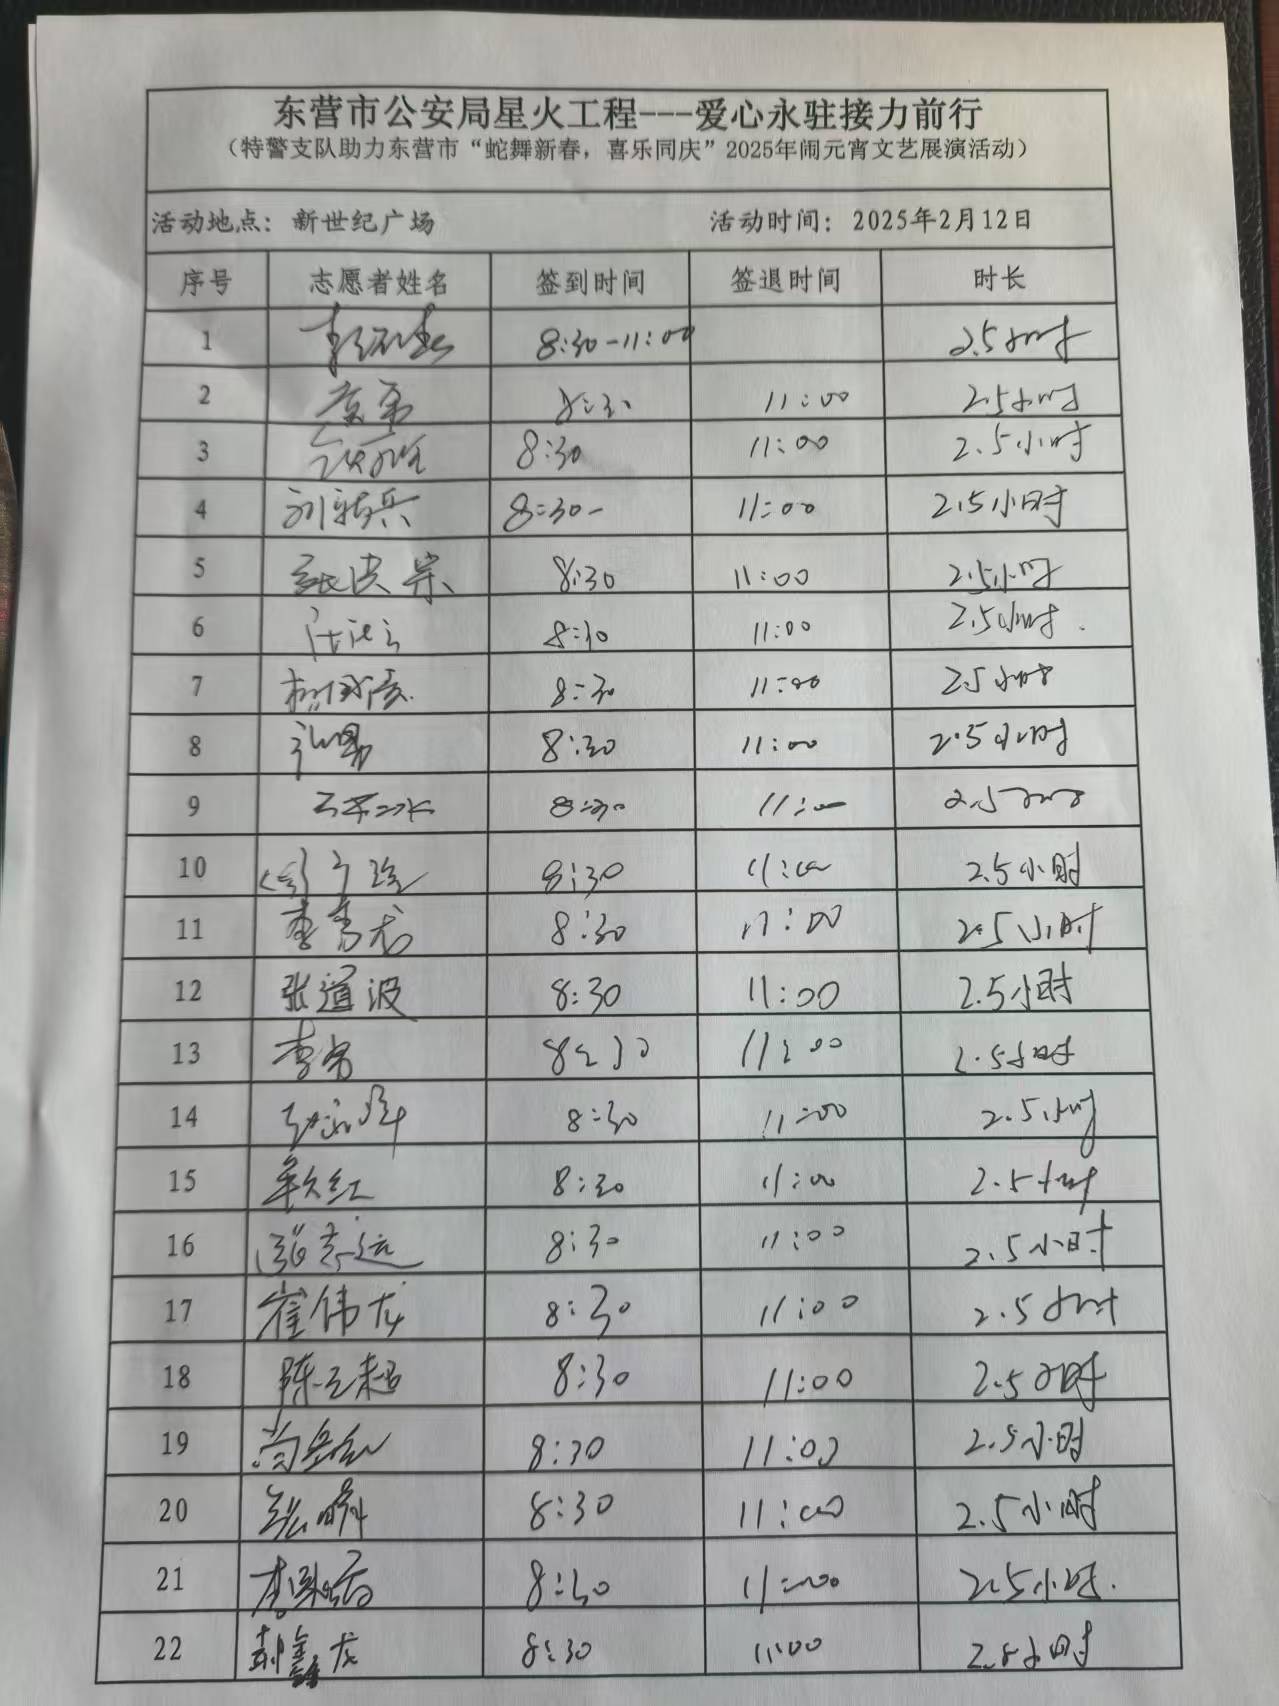 东营市公安局星火工程---爱心永驻接力前行
（特警支队助力东营市“蛇舞新春，喜乐同庆”2025年闹元宵文艺展演活动）
活动地点：新世纪广场 活动时间：2025年2月12日
序号 志愿者姓名 签到时间 签退时间 时长
1 8:30-11:00 2.5小时
2 8:30 11:00 2.5小时
3 8:30 11:00 2.5小时
4 8:30- 11:00 2.5小时
5 张洪宗 8:30 11:00 2.5小时
6 8:30 11:00 2.5小时.
7 8:30 11:00 2.5小时
8 8:30 11:00 2.5小时
9 8:30 11:00 2.5小时
10 8:30 11:00 2.5小时
11 李秀龙 8:30 11:00 2.5小时
12 张道波 8:30 11:00 2.5小时
13 8:30 11:00 2.5小时
14 8:30 11:00 2.5小时
15 8:30 11:00 2.5小时
16 张志远 8:30 11:00 2.5小时
17 崔伟龙 8:30 11:00 2.5小时
18 陈元超 8:30 11:00 2.5小时
19 8:30 11:00 2.5小时
20 8:30 11:00 2.5小时
21 8:30 11:00 2.5小时.
22 8:30 11:00 2.5小时